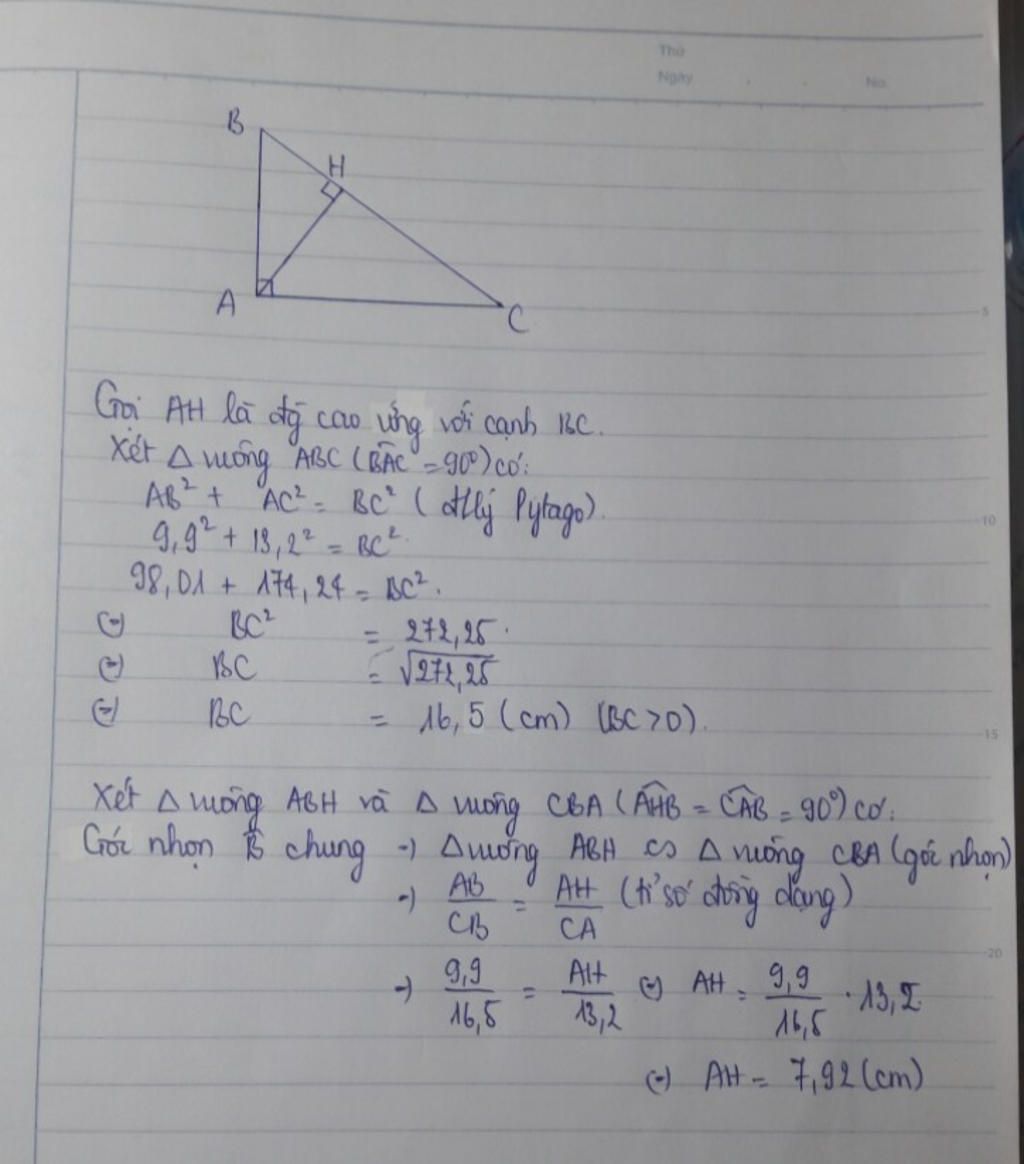 Thứ
Ngày No.
B
H
A
C
5
Gọi AH là độ cao ứng với cạnh BC.
Xét Δ vuông ABC (BÂC = 90°) có:
AB² + AC² = BC² (đlý Pytago).
10
9,9² + 13,2² = BC².
98,01 + 174,24 = BC².
⇔ BC² = 272,25.
⇔ BC = √272,25
⇔ BC = 16,5 (cm) (BC > 0).
15
Xét Δ vuông ABH và Δ vuông CBA (AĤB = CÂB = 90°) có:
Góc nhọn B̂ chung → Δ vuông ABH ∽ Δ vuông CBA (góc nhọn)
→ AB/CB = AH/CA (tỉ số đồng dạng)
20
→ 9,9/16,5 = AH/13,2 ⇔ AH = 9,9/16,5 · 13,2
⇔ AH = 7,92 (cm)